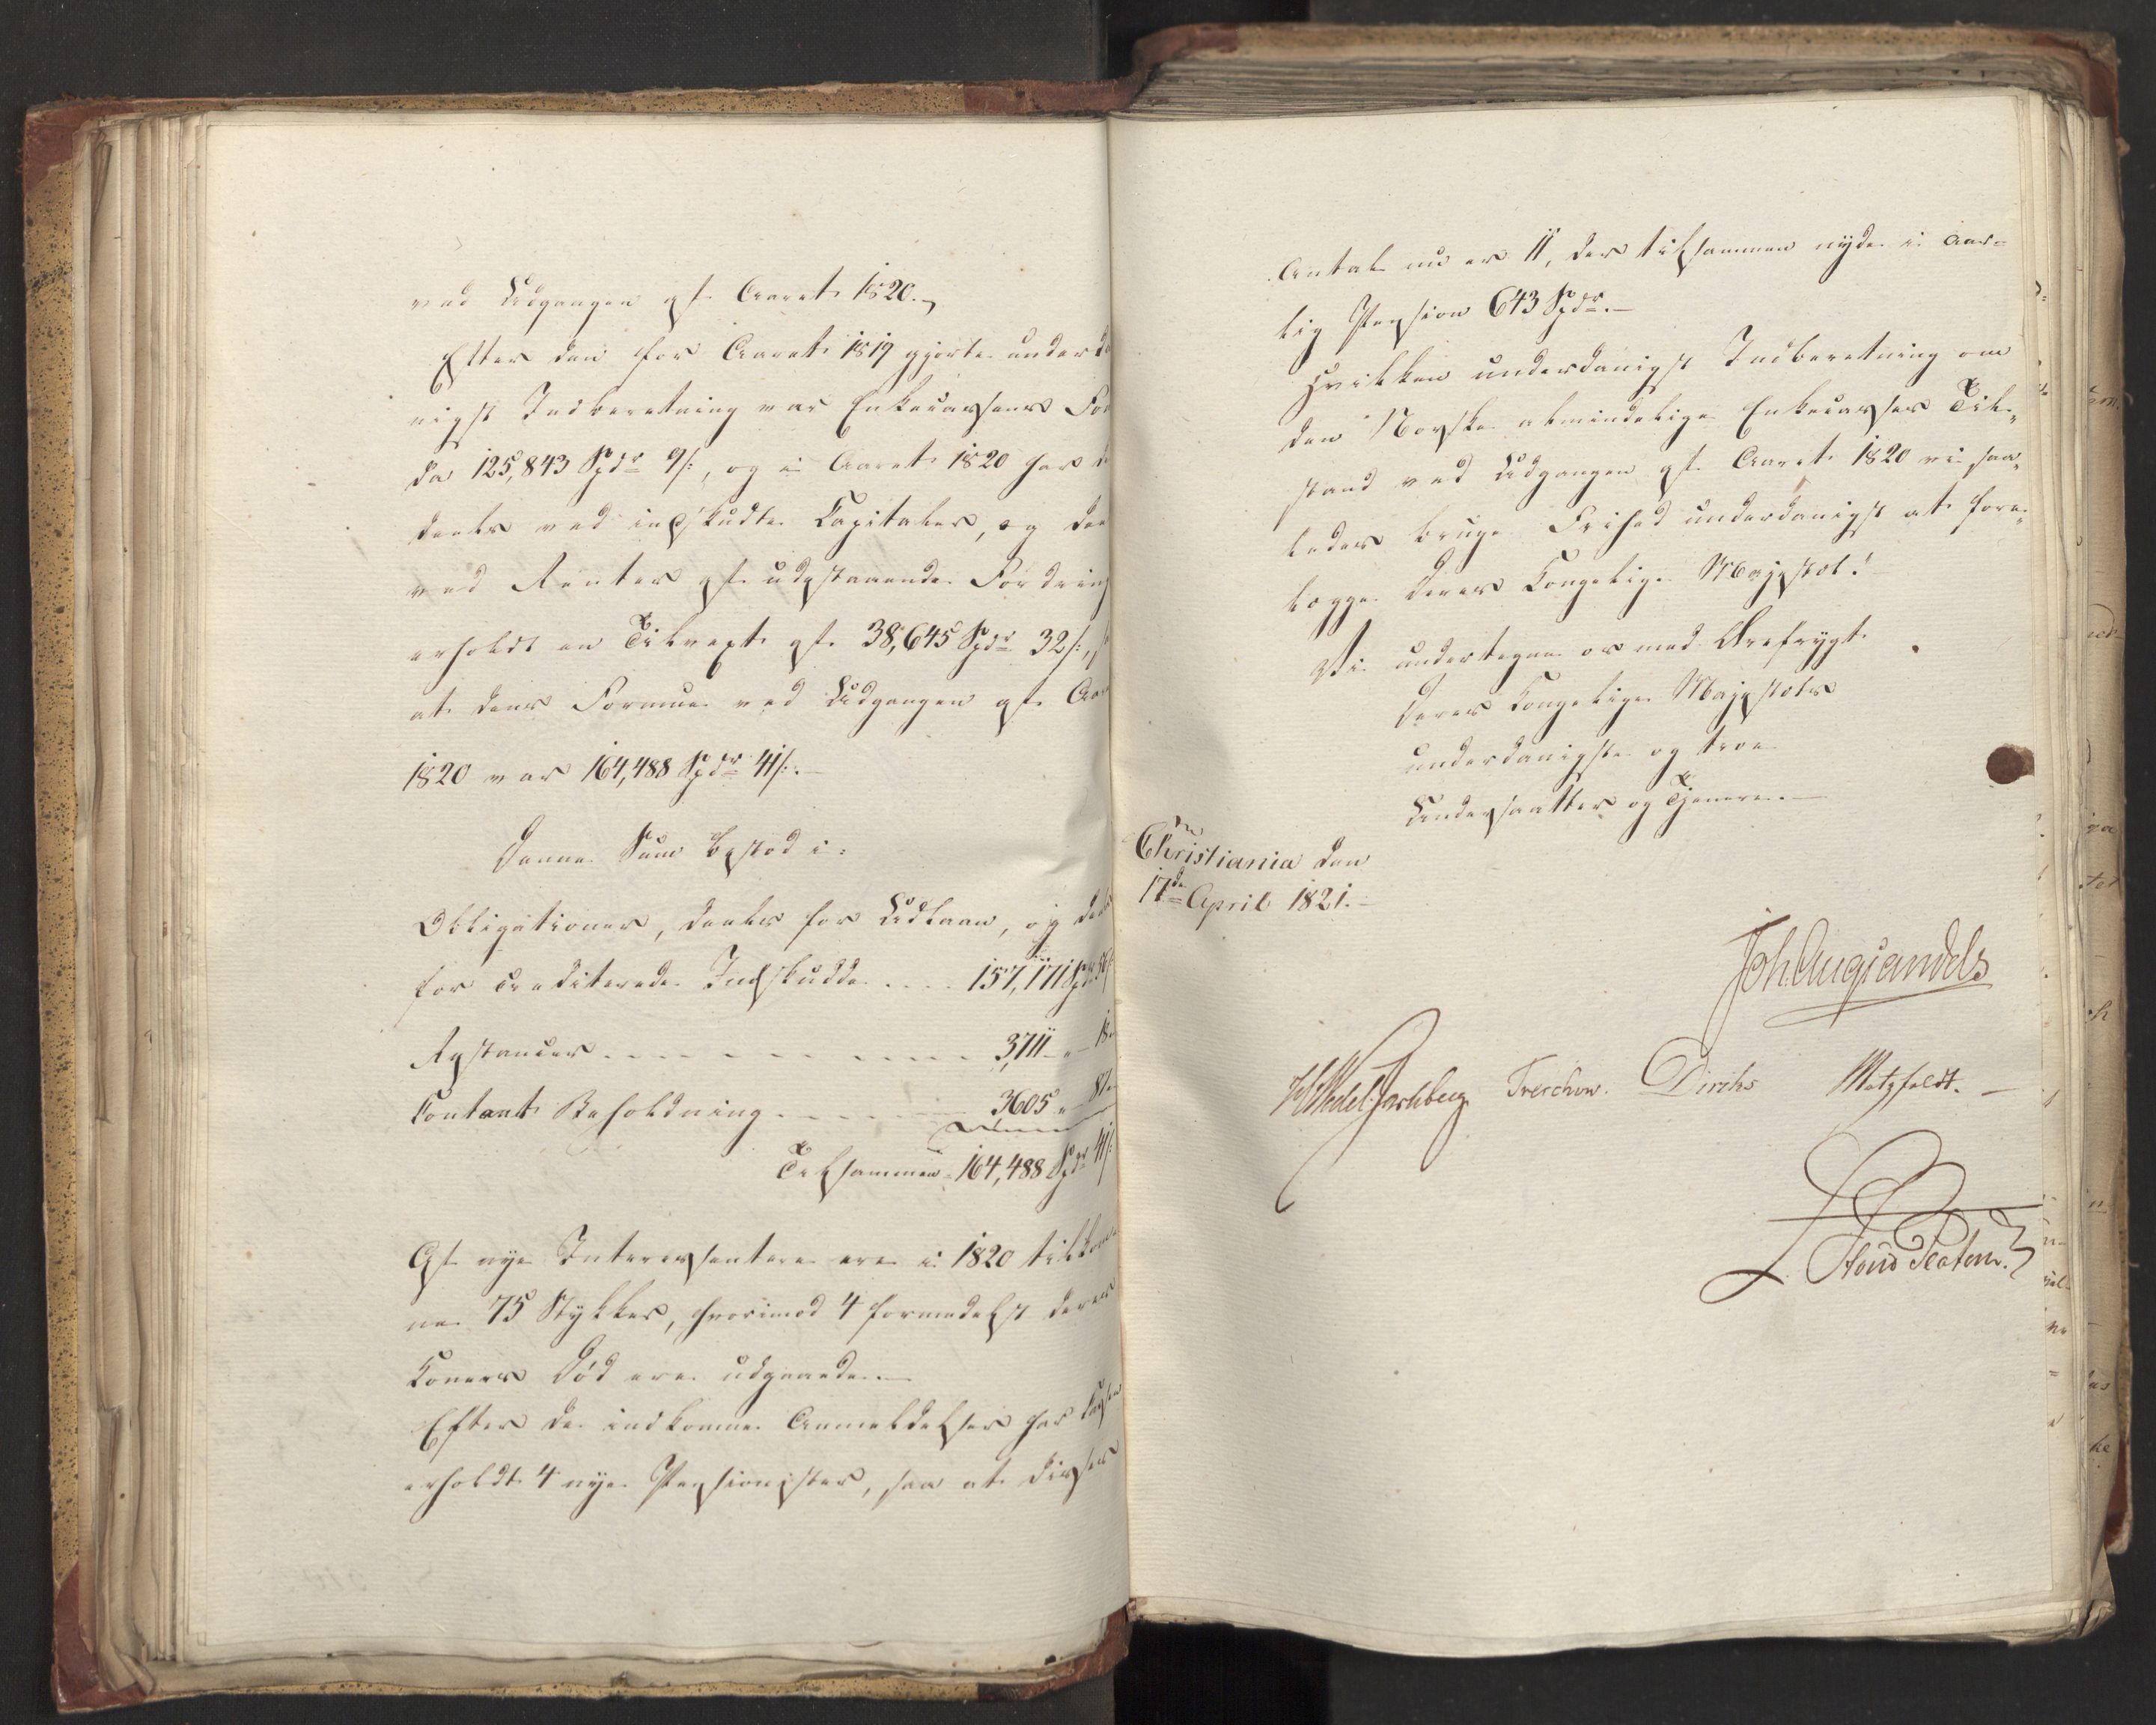 ved Udgangen af Aaret 1820.
Efter den for Aaret 1819 gjorte underda
nigst Indberetning var Enkecassens For
da 125,843 Spdr 9/:, og i Aaret 1820 har
deels ved indskudte Capitaler, og dee
ved Renter af udestaaende Fordring
erholdt en Tilvext af 38,645 Spdr 32/:,
at dens Formue ved Udgangen af Aar
1820 var 164,488 Spdr 41/:.
Denne Sum bestod i:
Obligationer, deels for Udlaan, og deels
for crediterede Indskudde .... 157,171 Spdr
Restancer ......... 3,711 " 18
Contant Beholdning ..... 3605 " 87
Tilsammen 164,488 Spdr 41/:
Af nye Interessentere ere i 1820 tilkom
ne 75 Stykker, hvorimod 4 formedelst deres
Koners Död ere udgaaede.
Efter de indkomne Anmeldelser har Cassen
erholdt 4 nye Pensionister, saa at disses
Antal nu er 11, der tilsammen nyde i aar=
lig Pension 643 Spdr.
Hvilken underdanigst Indberetning om
den Norske almindelige Enkecasses Til=
stand ved Udgangen af Aaret 1820 vi saa=
ledes bruge Frihed underdanigst at fore=
lægge Deres Kongelige Majestæt!
Vi undertegne os med Ærefrygt
Deres Kongelige Majestæts
underdanigste og troe
Undersaatter og Tjenere.
Christiania den
17de April 1821.
Joh. Aug. Sandels
Treschow. Diriks Motzfeldt.